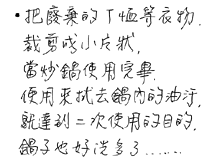 •把廢棄的T恤等衣物.
裁剪成小片狀,
當炒鍋使用完畢.
使用來拭去鍋內的油汙,
就達到二次使用的目的,
鍋子也好洗多了......